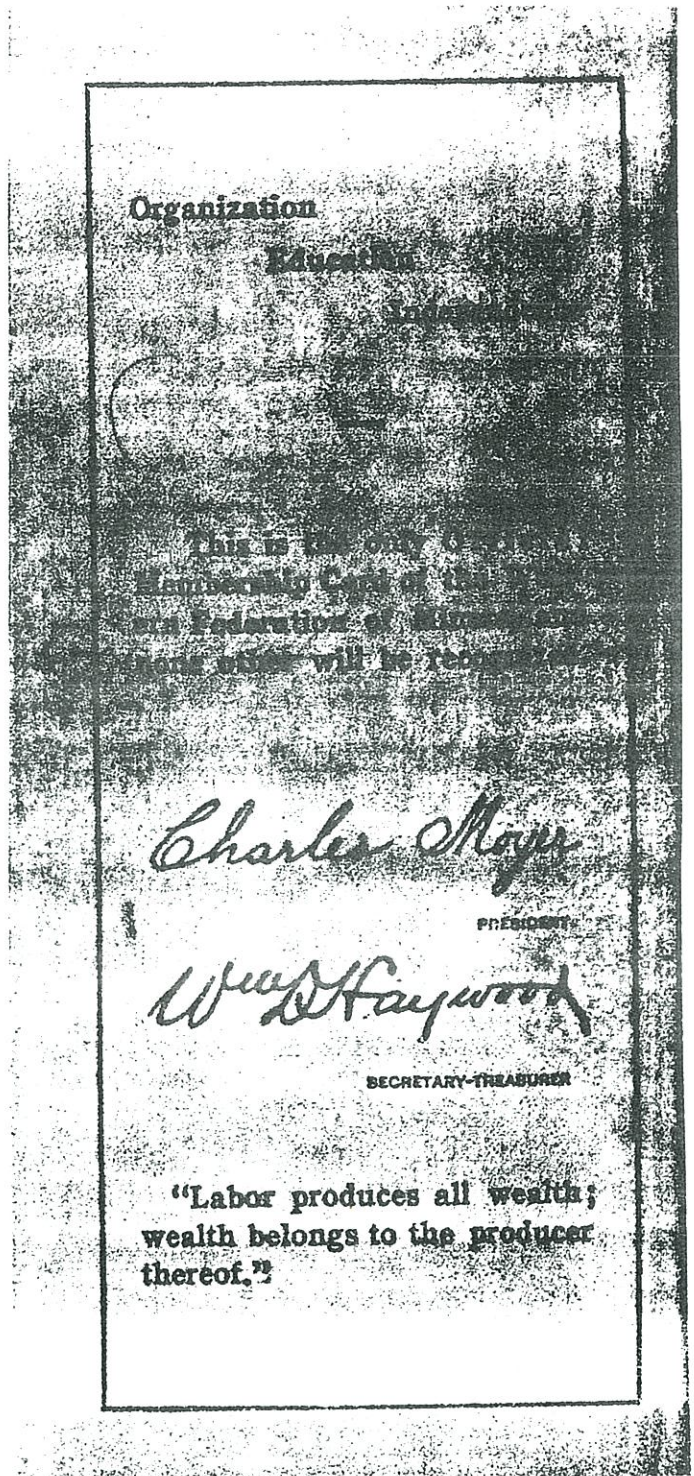 Organization
Education
This is the only
Membership Card of the
ern Federation of Miners and
none other will be
Charles Moyer
PRESIDENT
Wm D Haywood
SECRETARY-TREASURER
"Labor produces all wealth;
wealth belongs to the producer
thereof."